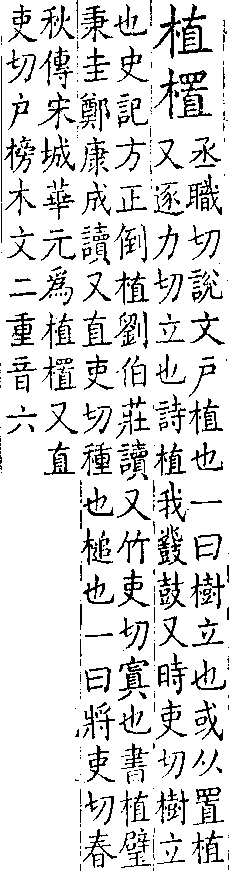 植㯰
丞職切說文戶植也一曰樹立也或从置植
又逐力切立也詩植我鼗鼓又時吏切樹立
也史記方正倒植劉伯莊讀又竹吏切寘也書植璧
秉圭鄭康成讀又直吏切種也槌也一曰將吏切春
秋傳宋城華元爲植㯰又直
吏切戶榜木文二重音六